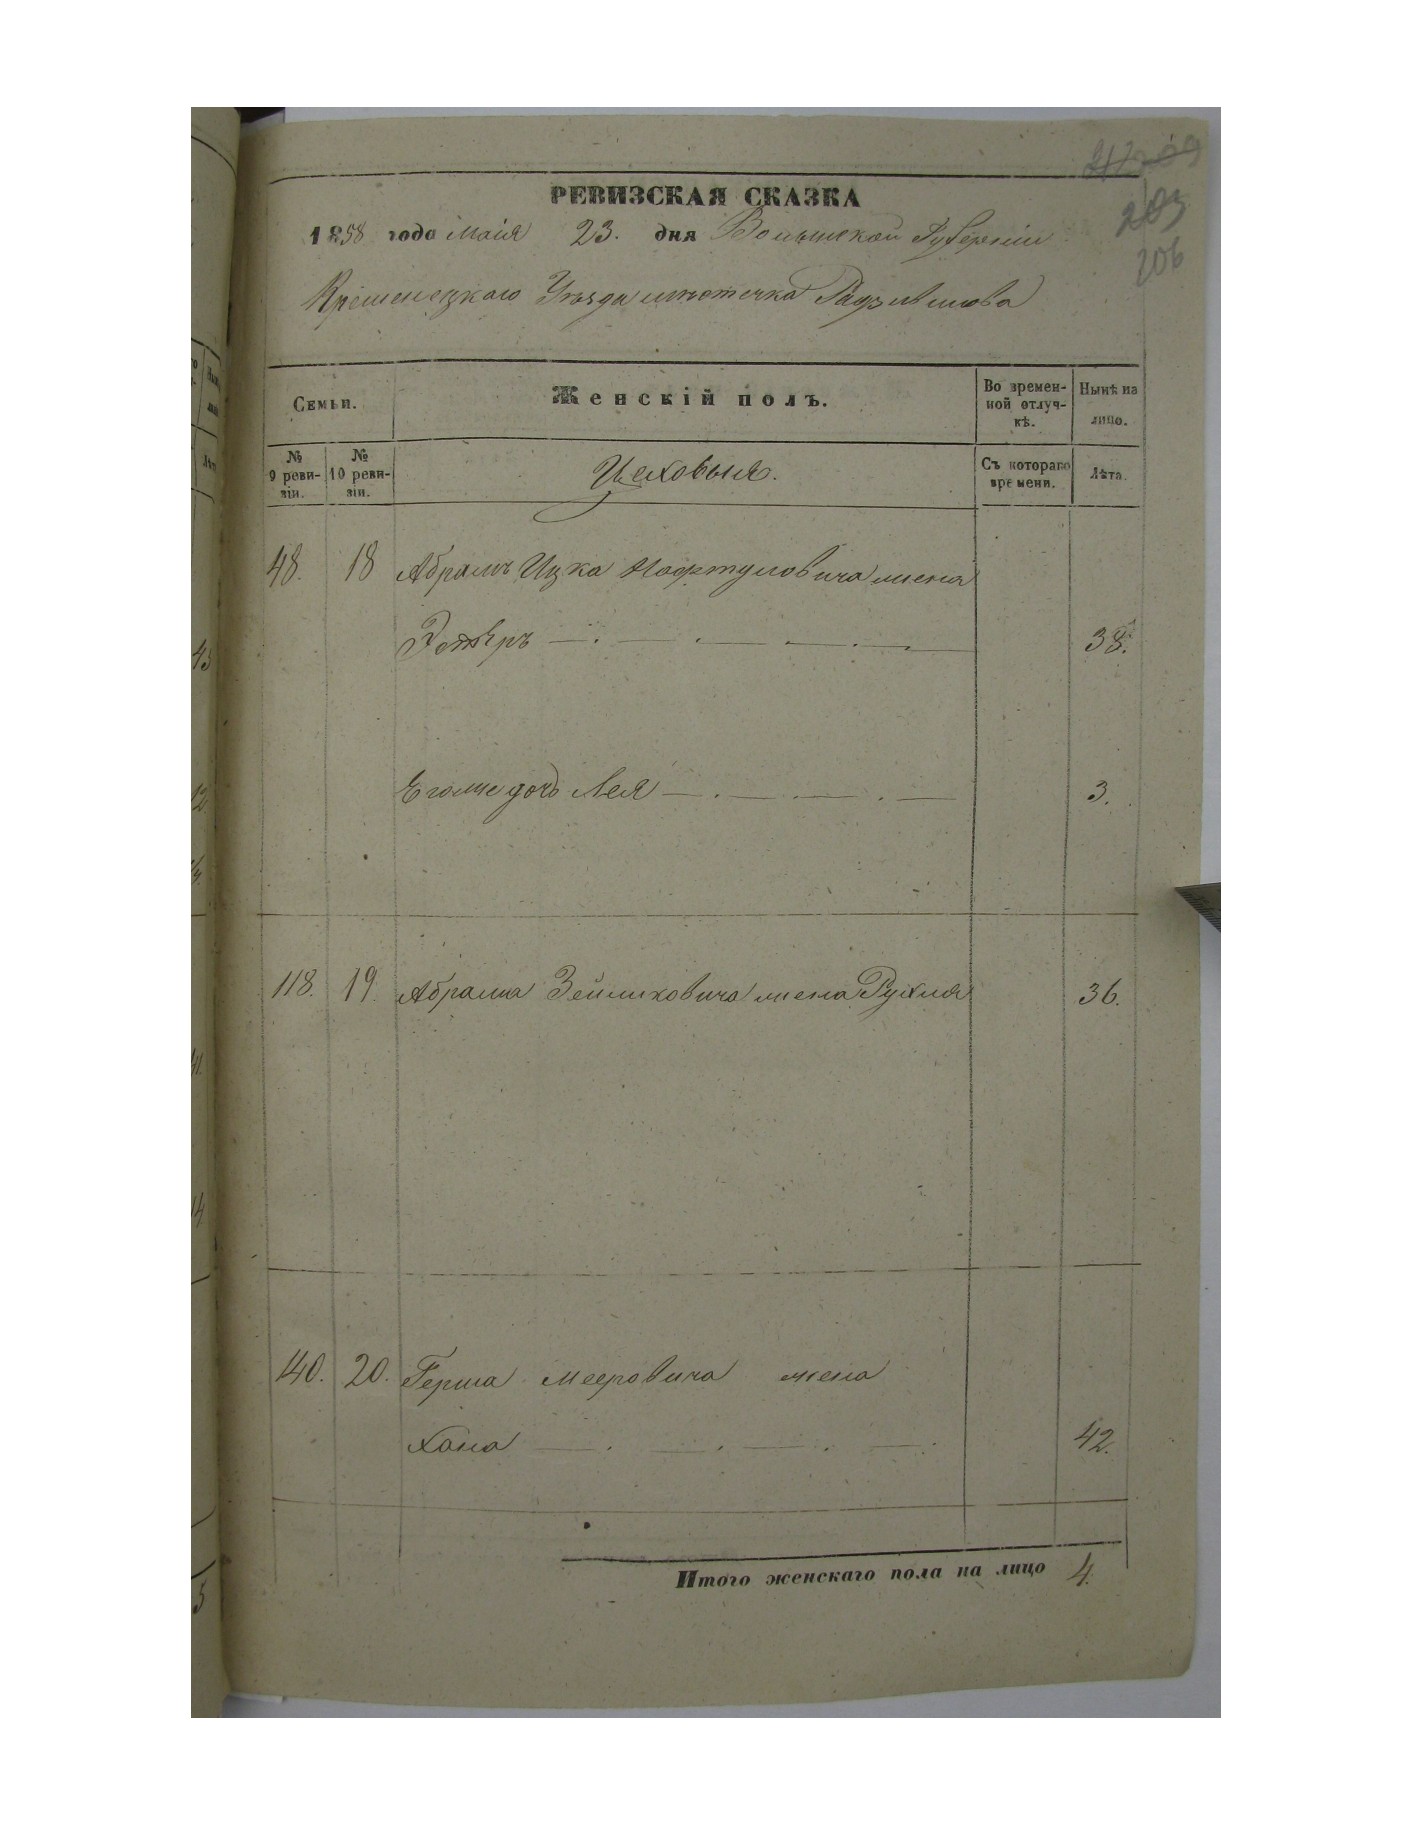 РЕВИЗСКАЯ СКАЗКА
1858 года маія 23. дня Волынской Губерніи
Кременецкого Уѣзда мѣстечка Радзивилова
203
206
Семьи.
Женскій полъ.
Во времен-
ной отлуч-
кѣ.
Нынѣ на
лицо.
№
9 реви-
зіи.
№
10 реви-
зіи.
Цеховыя.
Съ котораго
времени.
Лѣта.
48. 18 Абрамъ Ицка Нафтуловича жена
Эстеръ — . — . — . — 38.
Егоже дочь Лея — . — . — . — 3.
118. 19. Абрама Зейликовича жена Рухля 36.
140. 20. Герша Мееровича жена
Хана — . — . — . — . 42.
Итого женскаго пола на лицо 4.
43
12
41.
14
5